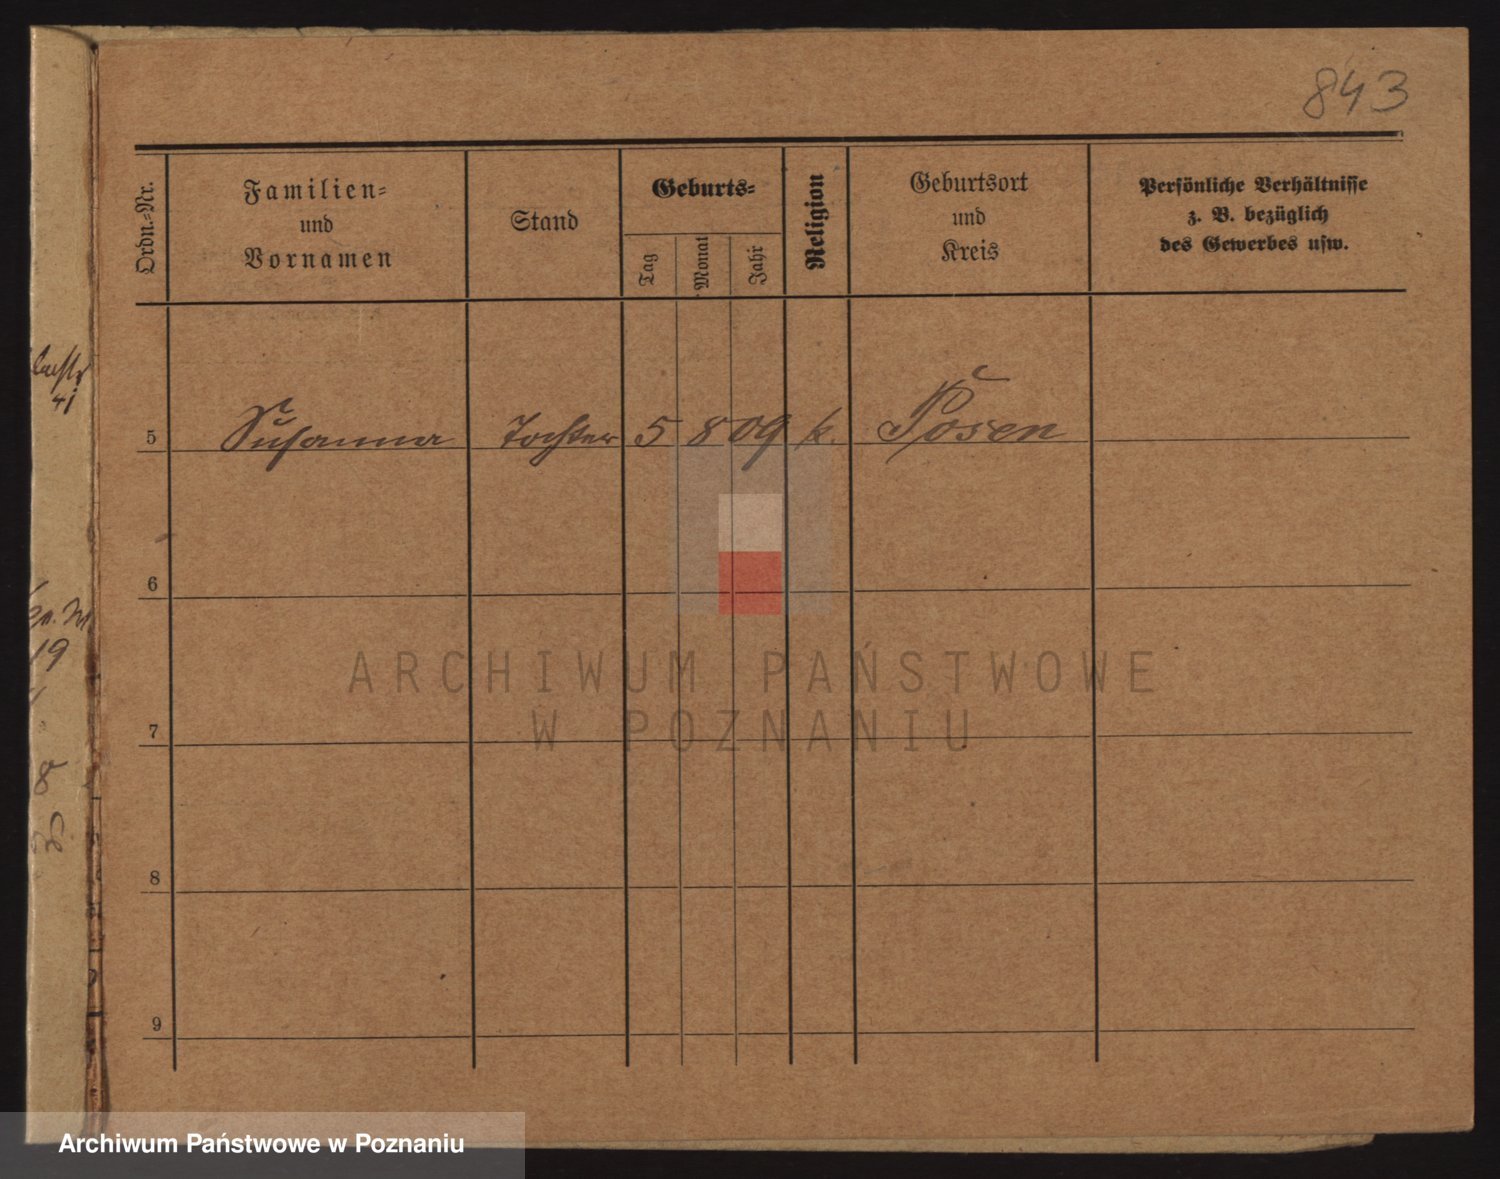 843
Ordn.-Nr.
Familien-
und
Vornamen
Stand
Geburts-
Tag
Monat
Jahr
Religion
Geburtsort
und
Kreis
Persönliche Verhältnisse
z. B. bezüglich
des Gewerbes usw.
5 Susanna Tochter 5 8 09 k. Posen
6
7
8
9
41
19
8
ARCHIWUM PAŃSTWOWE
W POZNANIU
Archiwum Państwowe w Poznaniu